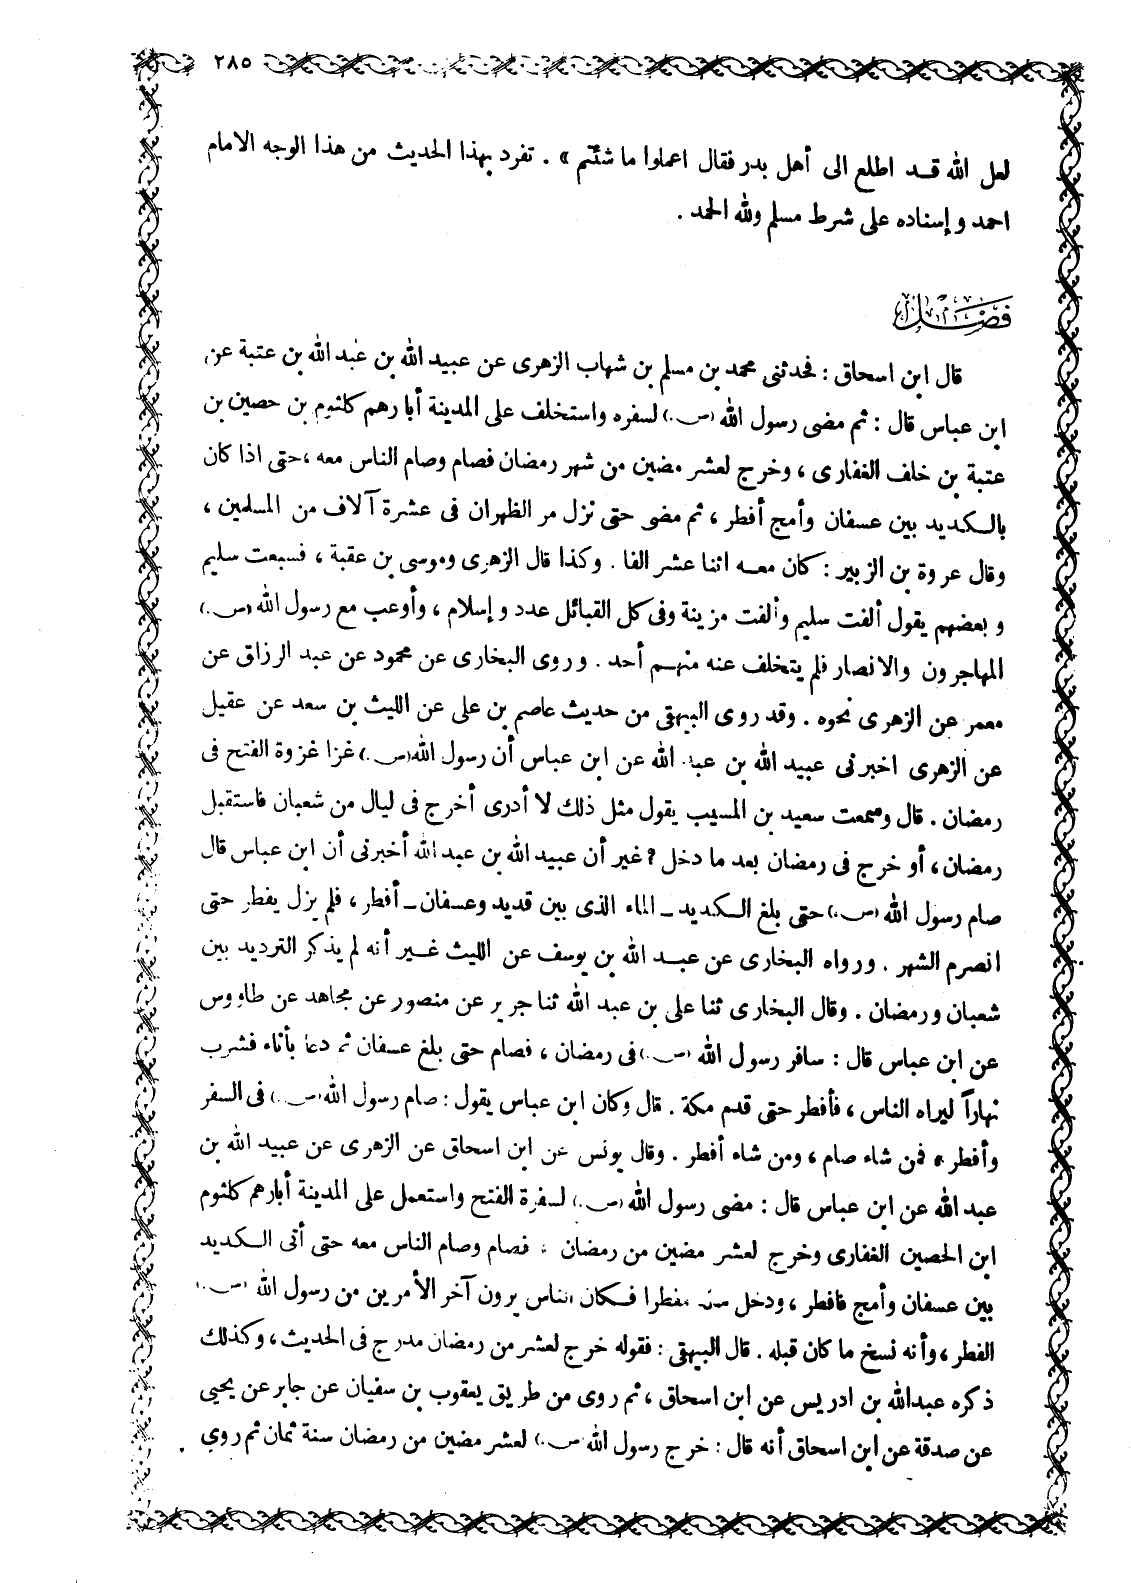 ٢٨٥
لعل الله قد اطلع الى أهل بدر فقال اعملوا ما شئتم » . تفرد بهذا الحديث من هذا الوجه الامام
احمد وإسناده على شرط مسلم ولله الحمد .
فصل
قال ابن اسحاق : فحدثنى محمد بن مسلم بن شهاب الزهرى عن عبيد الله بن عبد الله بن عتبة عن
ابن عباس قال : ثم مضى رسول الله (ص.) لسفره واستخلف على المدينة أبا رهم كلثوم بن حصين بن
عتبة بن خلف الغفارى ، وخرج لعشر مضين من شهر رمضان فصام وصام الناس معه ، حتى اذا كان
بالكديد بين عسفان وأمج أفطر ، ثم مضى حتى نزل مر الظهران فى عشرة آلاف من المسلمين ،
وقال عروة بن الزبير : كان معه اثنا عشر الفا . وكذا قال الزهرى وموسى بن عقبة ، فسبعت سليم
وبعضهم يقول ألفت سليم وألفت مزينة وفى كل القبائل عدد وإسلام ، وأوعب مع رسول الله (ص.)
المهاجرون والانصار فلم يتخلف عنه منهم أحد . وروى البخارى عن محمود عن عبد الرزاق عن
معمر عن الزهرى نحوه . وقد روى البيهقى من حديث عاصم بن على عن الليث بن سعد عن عقيل
عن الزهرى اخبرنى عبيد الله بن عبد الله عن ابن عباس أن رسول الله (ص.) غزا غزوة الفتح فى
رمضان . قال وسمعت سعيد بن المسيب يقول مثل ذلك لا أدرى أخرج فى ليال من شعبان فاستقبل
رمضان ، أو خرج فى رمضان بعد ما دخل ؟ غير أن عبيد الله بن عبد الله أخبرنى أن ابن عباس قال
صام رسول الله (ص.) حتى بلغ الكديد ـ الماء الذى بين قديد وعسفان ـ أفطر ، فلم يزل يفطر حتى
انصرم الشهر . ورواه البخارى عن عبد الله بن يوسف عن الليث غير أنه لم يذكر الترديد بين
شعبان ورمضان . وقال البخارى ثنا على بن عبد الله ثنا جرير عن منصور عن مجاهد عن طاووس
عن ابن عباس قال : سافر رسول الله (ص.) فى رمضان ، فصام حتى بلغ عسفان ثم دعا بأناء فشرب
نهاراً ليراه الناس ، فأفطر حتى قدم مكة . قال وكان ابن عباس يقول : صام رسول الله (ص.) فى السفر
وأفطر ، فمن شاء صام ، ومن شاء أفطر . وقال يونس عن ابن اسحاق عن الزهرى عن عبيد الله بن
عبد الله عن ابن عباس قال : مضى رسول الله (ص.) لسفرة الفتح واستعمل على المدينة أبارهم كلثوم
ابن الحصين الغفارى وخرج لعشر مضين من رمضان ، فصام وصام الناس معه حتى أتى الكديد
بين عسفان وأمج فافطر ، ودخل مفطرا فكان الناس يرون آخر الأمرين من رسول الله (ص.)
الفطر ، وأنه نسخ ما كان قبله . قال البيهقى : فقوله خرج لعشر من رمضان مدرج فى الحديث ، وكذلك
ذكره عبدالله بن ادريس عن ابن اسحاق ، ثم روى من طريق يعقوب بن سفيان عن جابر عن يحيى
عن صدقة عن ابن اسحاق أنه قال : خرج رسول الله (ص.) لعشر مضين من رمضان سنة ثمان ثم روي